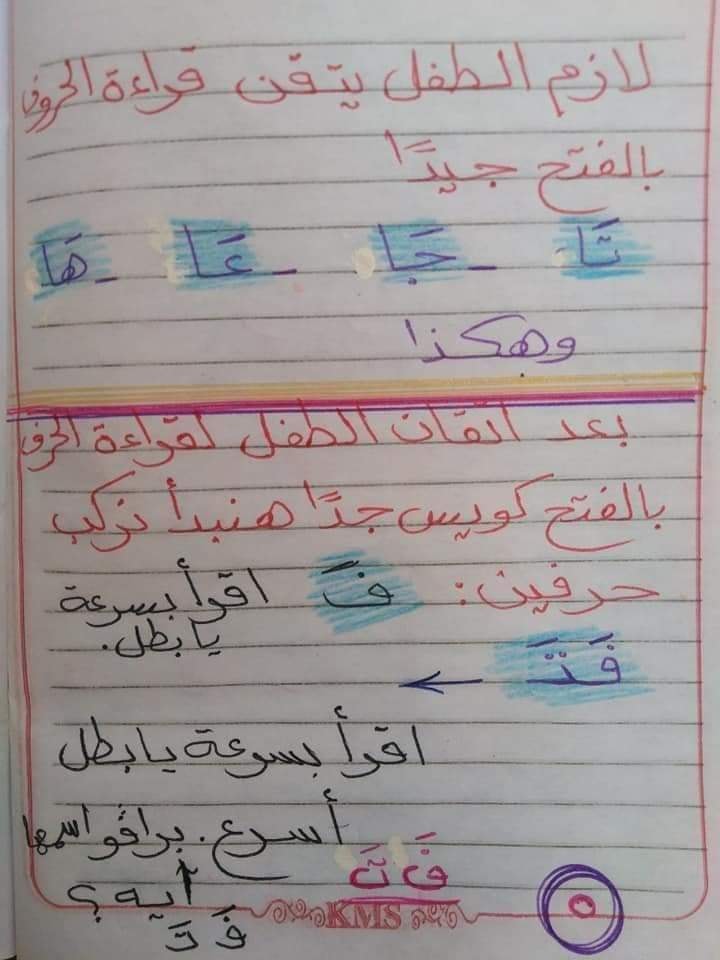 لازم الطفل يتقن قراءة الحروف
بالفتح جيدًا
تَا - جَا - عَا - هَا
وهكذا
بعد اتقان الطفل لقراءة الحرف
بالفتح كويس جدًا هنبدأ نركب
حرفين: فَ اقرأ بسرعة
يا بطل.
فَتَ ←
اقرأ بسرعة يا بطل
أسرع. برافو اسمها
فَ تَ
أيه؟
فَ تَ
KMS
٥